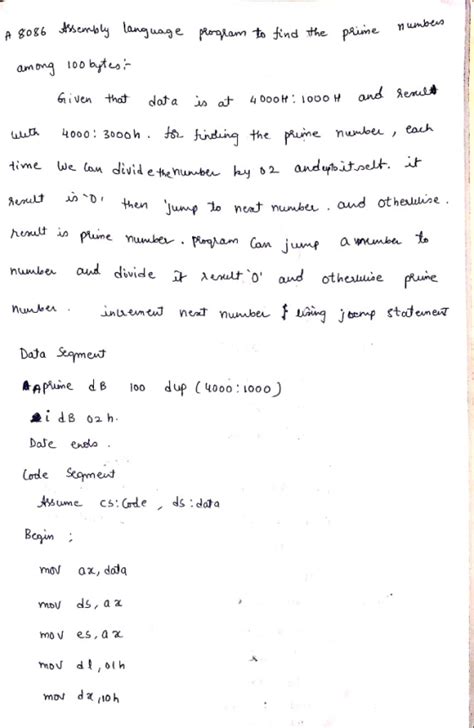 A 8086 Assembly language program to find the prime numbers
among 100 bytes:-
Given that data is at 4000H:1000H and result
with 4000:3000h. for finding the prime number, each
time we can divide the number by 02 and upto itself. if
result is '0' then jump to next number. and otherwise.
result is prime number. program can jump a number to
number and divide if result '0' and otherwise prime
number. increment next number & using jump statement
Data Segment
Aprime dB 100 dup (4000:1000)
i dB 02h.
Date ends.
Code Segment
Assume cs:Code, ds:data
Begin ;
mov ax, data
mov ds, ax
mov es, ax
mov dl, 01h
mov dx, 10h